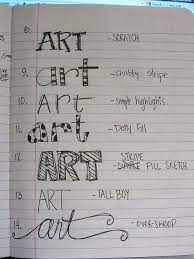 8. ART - SCRATCH
9. art - chubby stripe
10. Art - simple highlights
11. art - Dotty Fill
12. ART STRIPE - SIMPLE FILL SKETCH
13. ART - TALL BOY
14. art - OVER-SWOOP